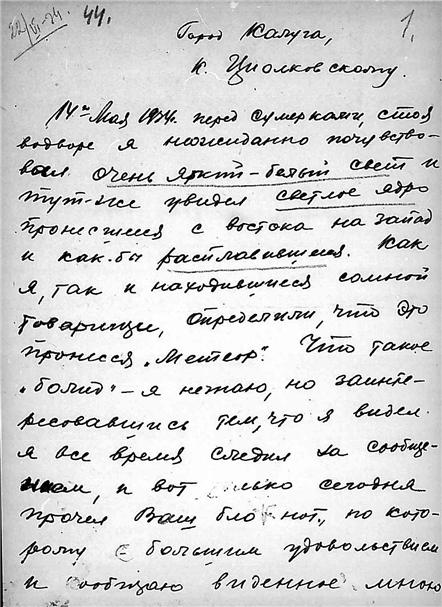 22/VI-34.
44.
1.
Город Калуга,
К. Циолковскому.
14го Мая 1934г. перед сумерками, стоя
водворе я неожиданно почувство-
вал очень яркий-белый свет и
тут-же увидел светлое ядро
пронесшееся с востока на запад
и как-бы расплавившееся. Как
я, так и находившиеся сомной
товарищи, определили, что это
пронесся „Метеор". Что такое
„болид" – я незнаю, но заинте-
ресовавшись тем, что я видел
я все время следил за сообще-
нием, и вот только сегодня
прочел Ваш блокнот, по кото-
рому с большим удовольствием
и сообщаю виденное мною